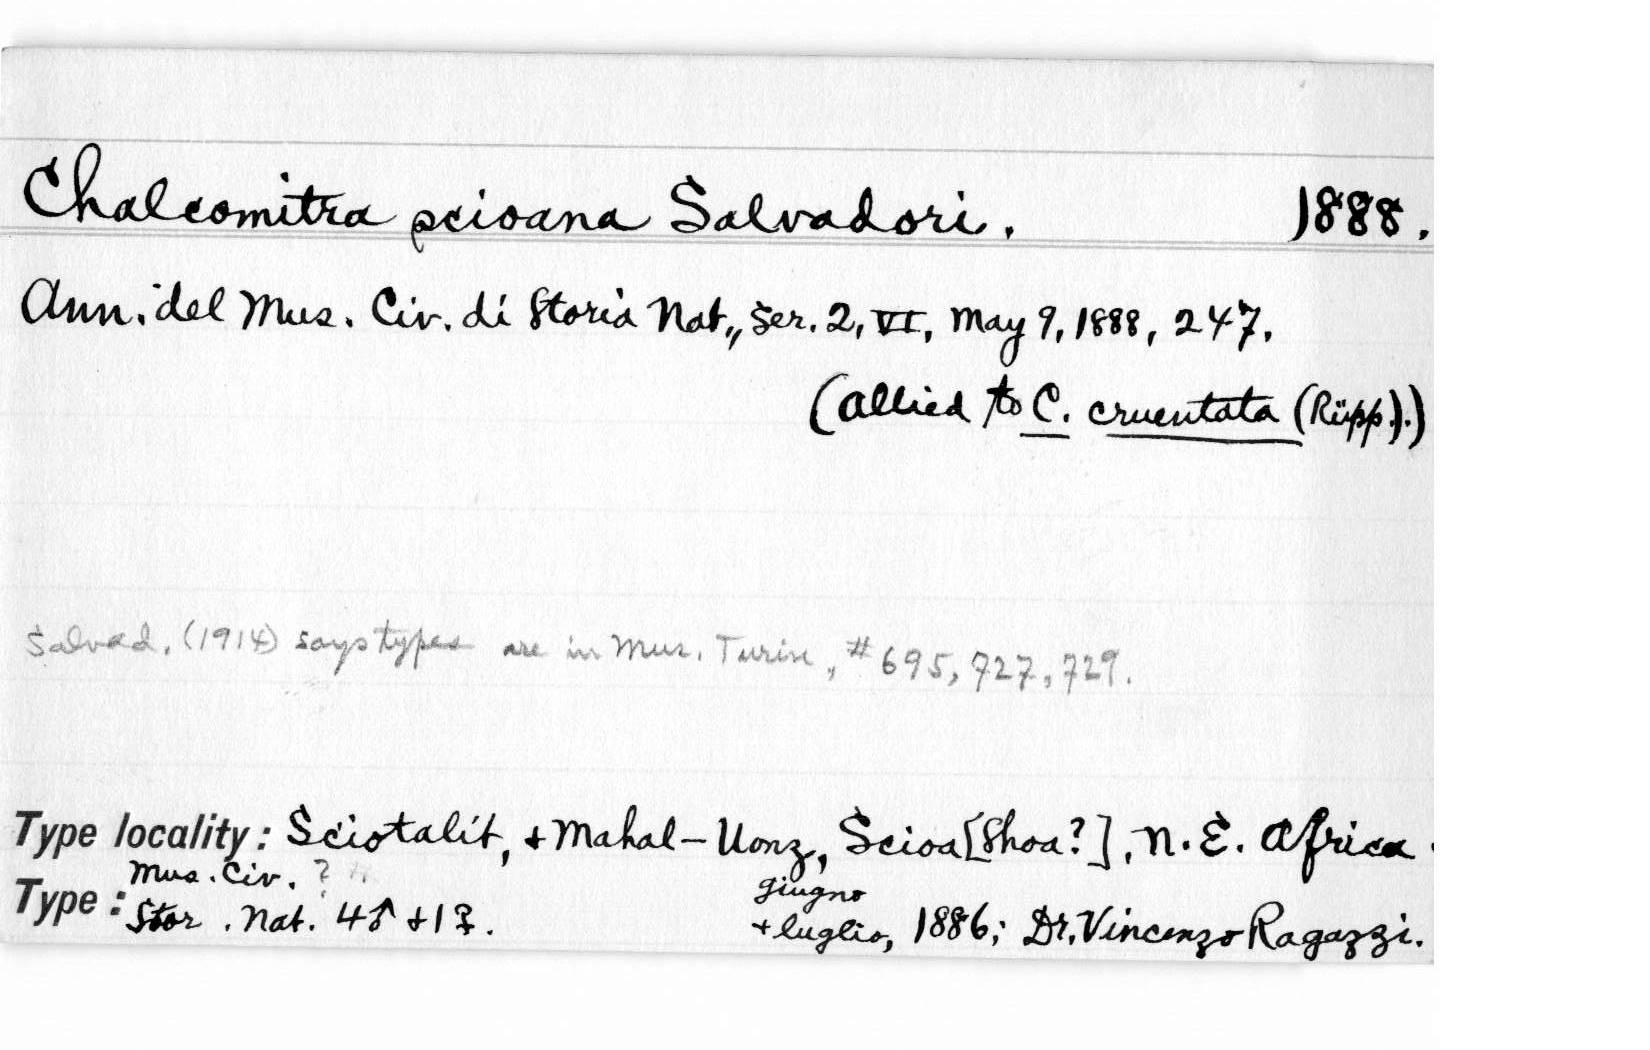 Chalcomitra scioana Salvadori. 1888.
Ann. del Mus. Civ. di Storia Nat., Ser. 2, VI, May 9, 1888, 247.
(allied to C. cruentata (Rüpp.).)
Salvad. (1914) says types are in Mus. Turin, #695, 727, 729.
Type locality: Sciotalit, + Mahal-Uonz, Scioa [Shoa?], N.E. Africa.
Mus. Civ. ? giugno
Type: Stor. Nat. 4♂ + 1♀. + luglio, 1886; Dr. Vincenzo Ragazzi.